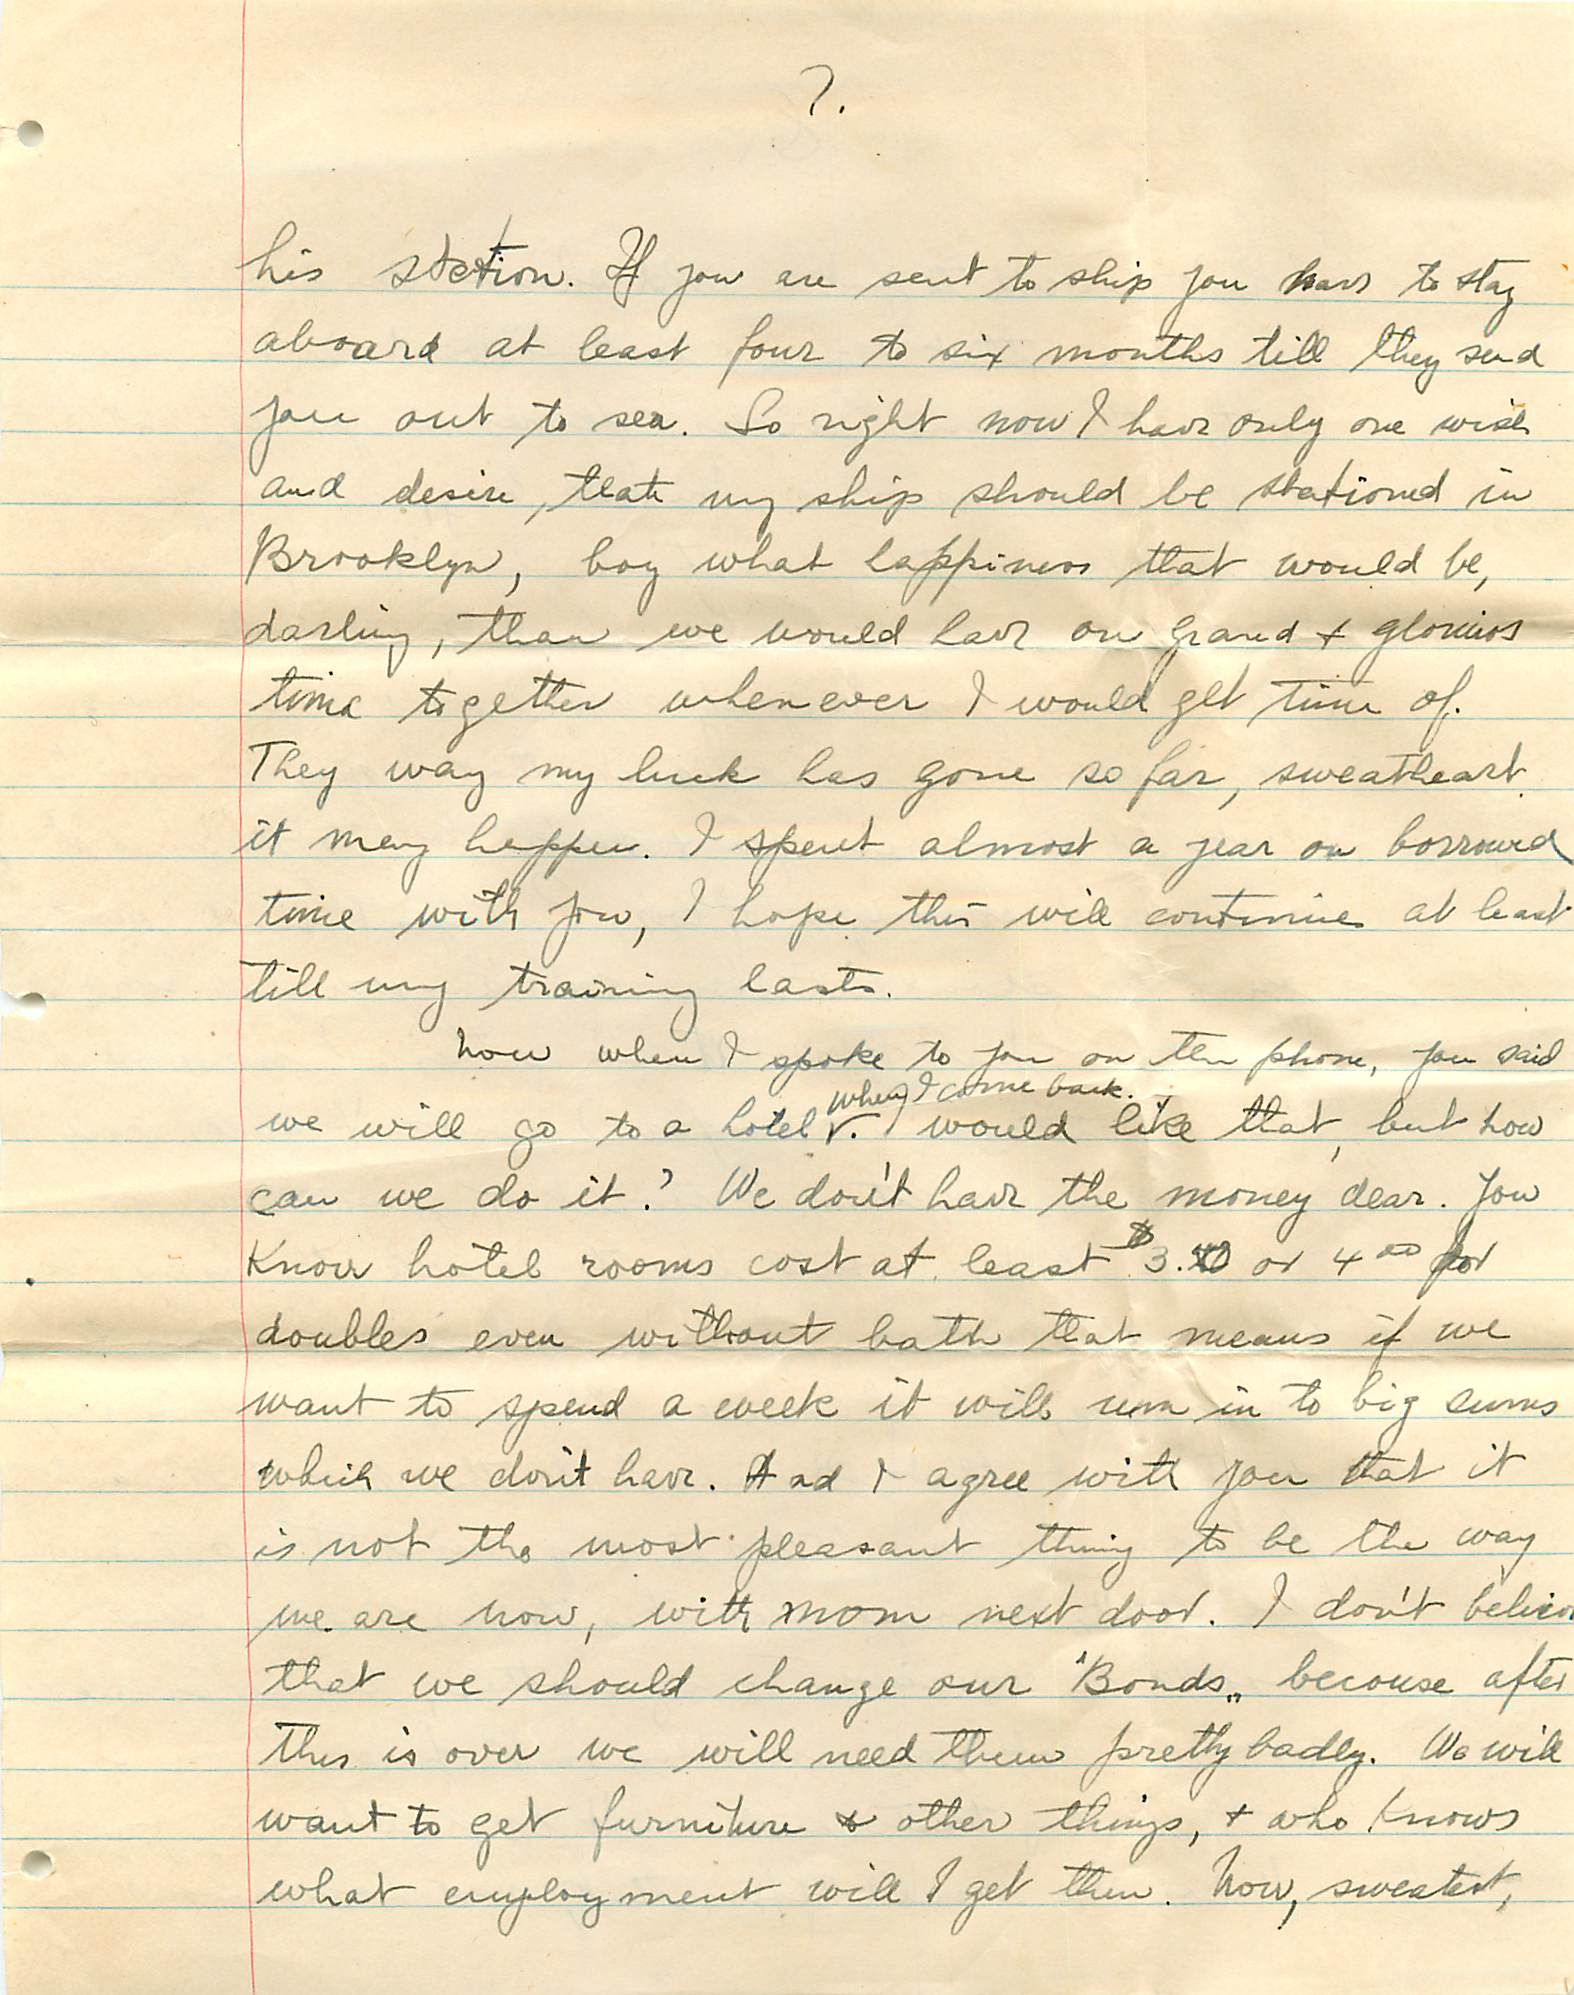 7.
his station. If you are sent to ship you have to stay
aboard at least four to six months till they send
you out to sea. So right now I have only one wish
and desire, that my ship should be stationed in
Brooklyn, boy what happiness that would be,
darling, than we would have our grand & glorios
time together whenever I would get time of.
They way my luck has gone so far, sweatheart
it may happen. I spent almost a year on borrowed
time with you, I hope this will continue at least
till my training lasts.
Now when I spoke to you on the phone, you said
when I come back.
we will go to a hotel. I would like that, but how
can we do it? We don't have the money dear. You
know hotel rooms cost at least $3. or 4.00 for
doubles even without bath that means if we
want to spend a week it will run in to big sums
which we don't have. And I agree with you that it
is not the most pleasant thing to be the way
we are now, with mom next door. I don't believe
that we should change our "Bonds„ becouse after
this is over we will need them pretty badly. We will
want to get furniture & other things, & who knows
what employment will I get then. Now, sweatest,